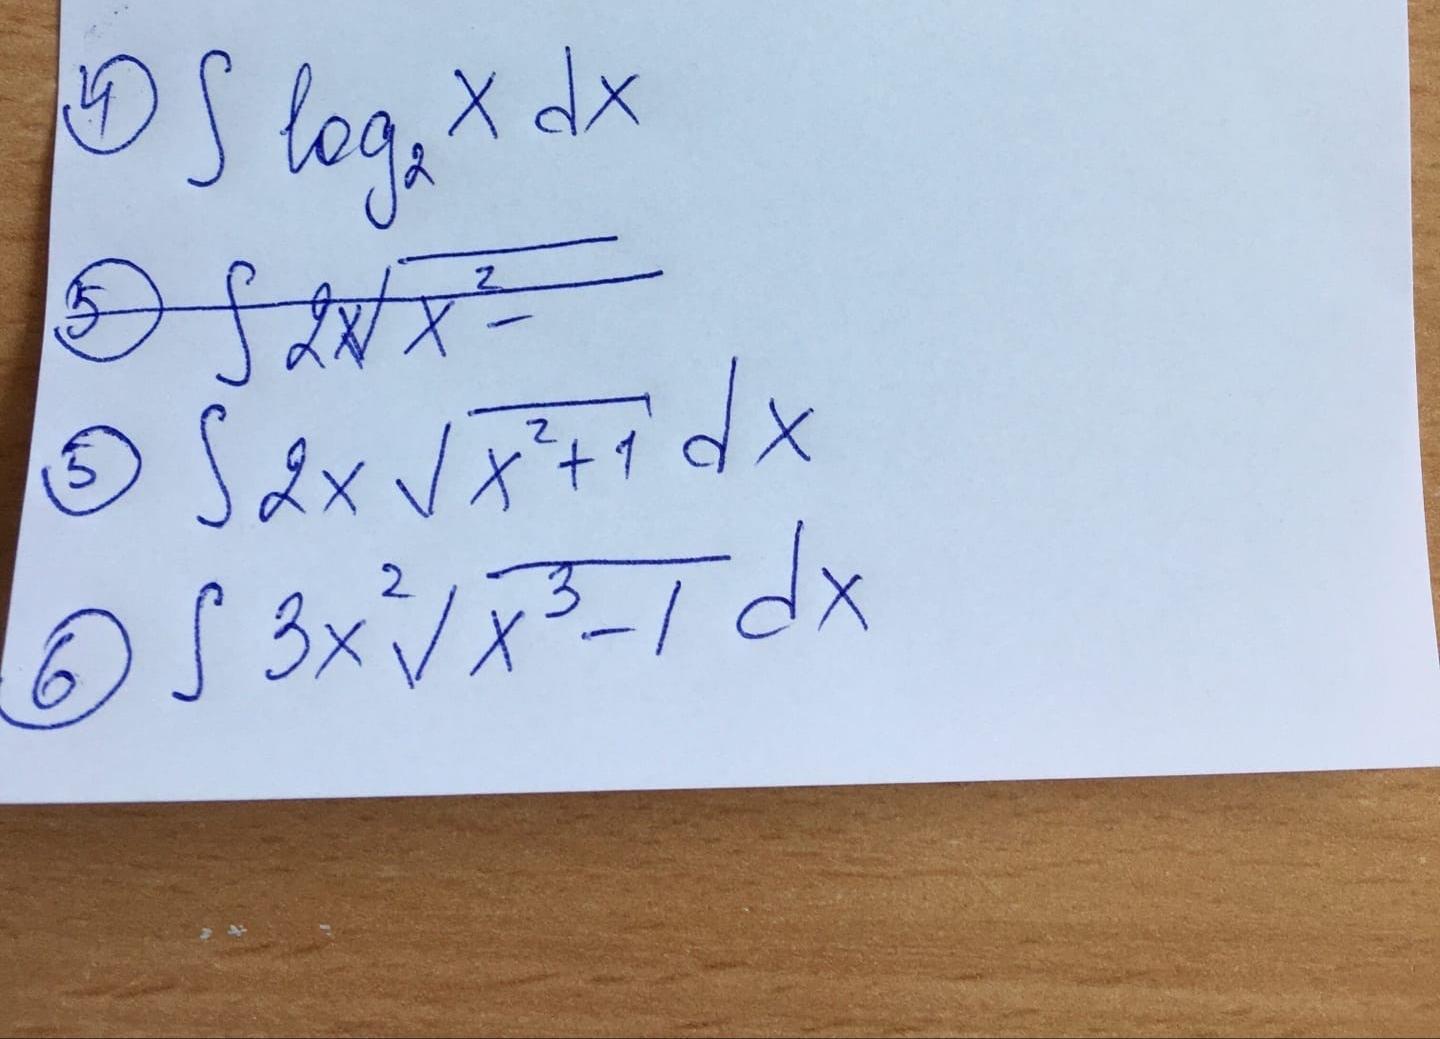 ④ ∫ log₂ x dx
⑤ ∫ 2x√x² -
⑤ ∫ 2x √(x²+1) dx
⑥ ∫ 3x² √(x³-1) dx